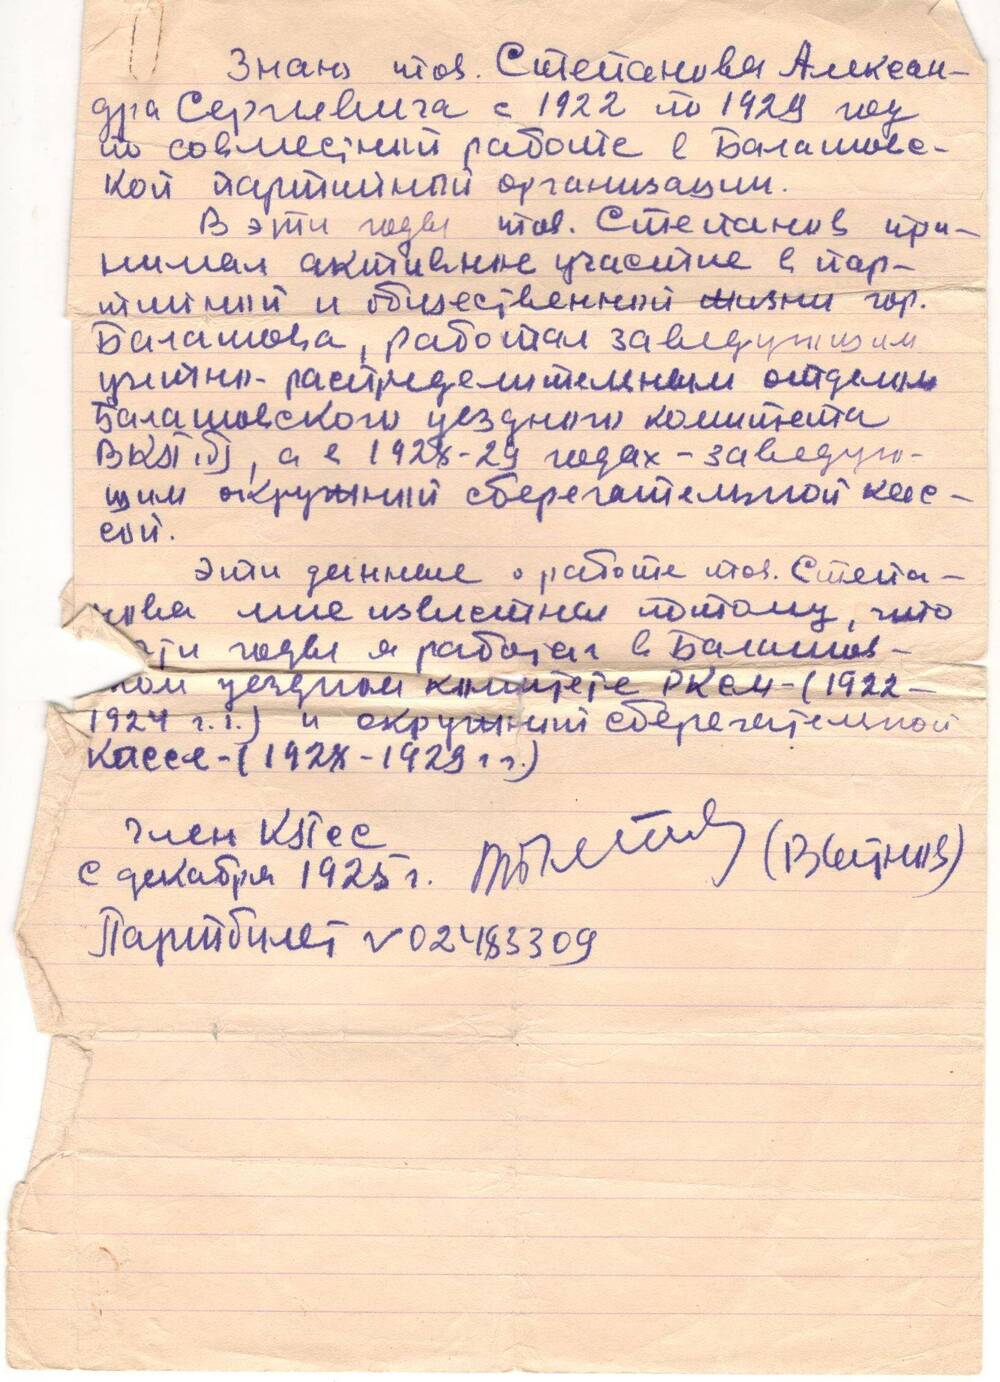 Знаю тов. Степанова Алексан-
дра Сергеевича с 1922 по 1929 год
по совместной работе в Балашовс-
кой партийной организации.
В эти годы тов. Степанов при-
нимал активное участие в пар-
тийной и общественной жизни гор.
Балашова, работал заведующим
учетно-распределительным отделом
Балашовского уездного комитета
ВКП(б), а в 1928-29 годах - заведую-
щим окружной сберегательной кас-
сой.
Эти данные о работе тов. Степа-
нова мне известны потому, что
эти годы я работал в Балашов-
ском уездном комитете РКСМ-(1922-
1924 г.г.) и окружной сберегательной
кассе-(1928-1929 г г.)
Член КПСС
с декабря 1925 г. (Вытнов)
Партбилет № 02483309